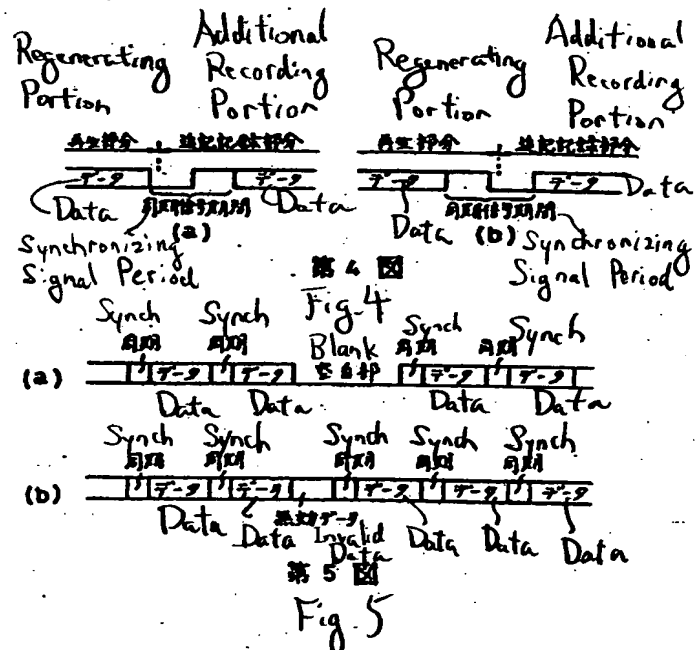 Regenerating Portion
Additional Recording Portion
Regenerating Portion
Additional Recording Portion
再生部分 追記記録部分 再生部分 追記記録部分
データ データ データ データ Data
Data 同期信号期間 Data Data 同期信号期間
(a) (b)
Synchronizing Signal Period
Synchronizing Signal Period
第 4 図
Fig. 4
Synch Synch Blank Synch Synch
同期 同期 空白部 同期 同期
(a) データ データ データ データ
Data Data Data Data
Synch Synch Synch Synch Synch
同期 同期 同期 同期 同期
(b) データ データ データ データ データ
無効データ
Data Data Invalid Data Data Data Data
第 5 図
Fig. 5